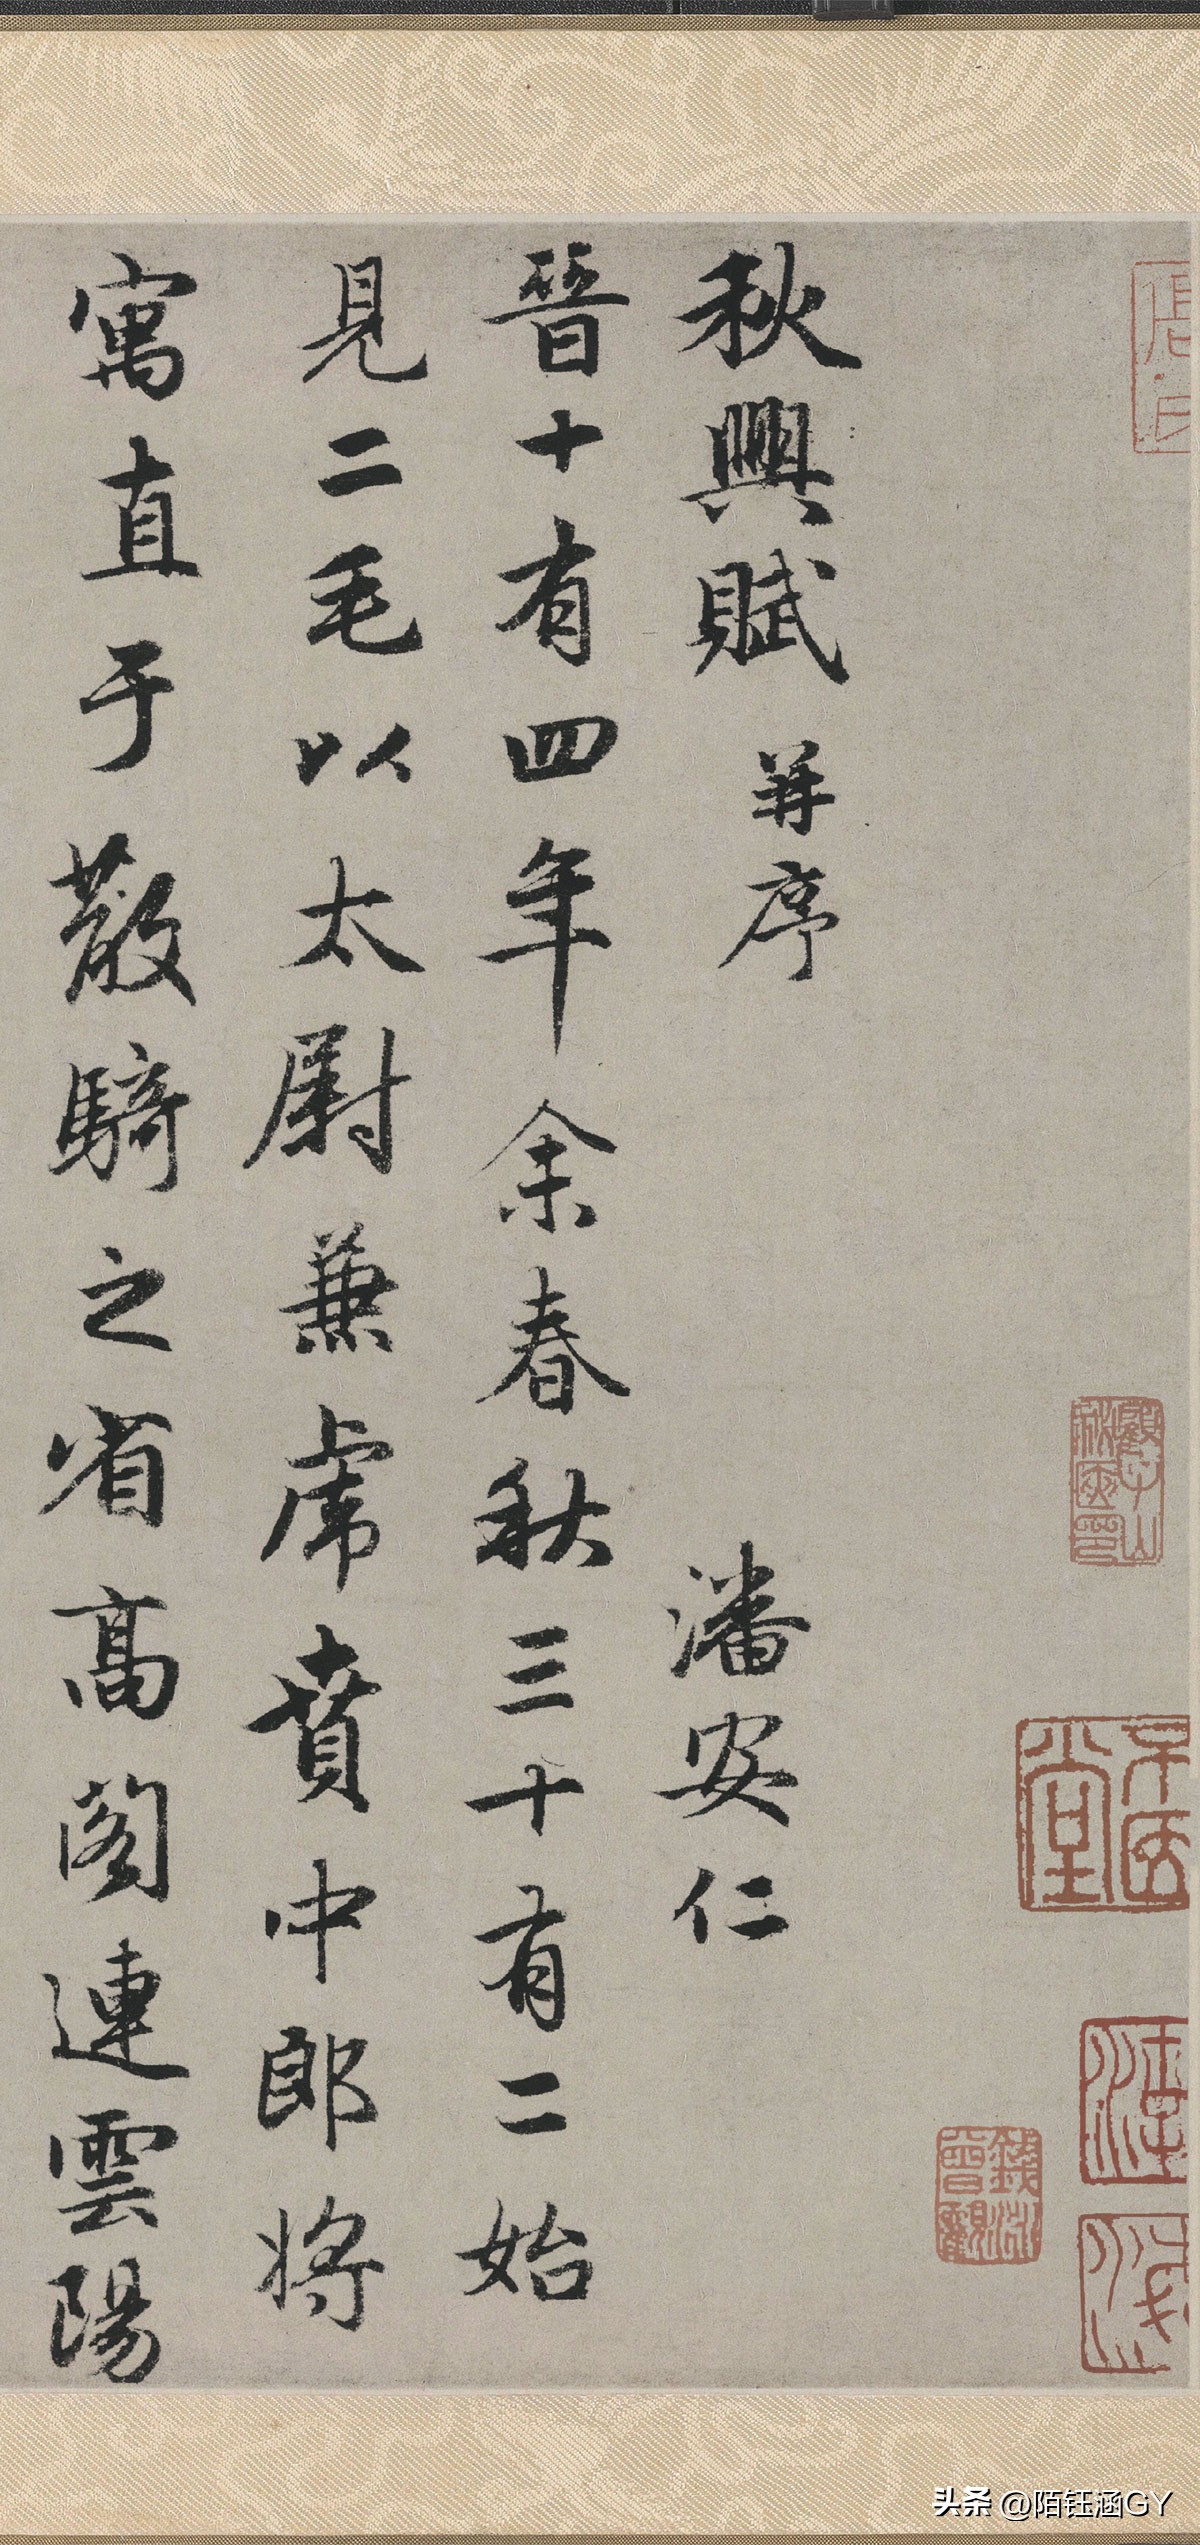 秋興賦 并序 潘安仁
晉十有四年余春秋三十有二始
見二毛以太尉兼虎賁中郎將
寓直于散騎之省高閣連雲陽
頭条 @陌钰涵GY